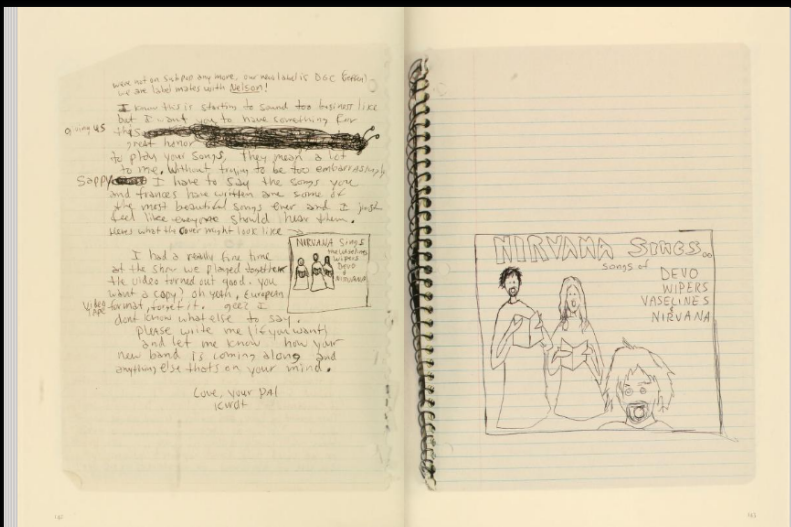 were not on Sub pop any more, our new label is DGC
we are label mates with Nelson!
I know this is starting to sound too business like
but I want you to have something for
giving us this
great honor
to play your songs, they mean a lot
to me. Without trying to be too embarrassingly
Sappy I have to say the songs you
and frances have written are some of
the most beautiful songs ever and I just
feel like everyone should hear them.
Heres what the Cover might look like
I had a really fine time
at the show we played together
the video turned out good. you
want a copy? oh yeah, European
Video tape format, forget it. gee? I
dont know what else to say.
please write me (if you want)
and let me know how your
new band is coming along and
anything else thats on your mind.
Love, your pal
Kurdt
NIRVANA Sings
the Vaselines
Wipers
DEVO
&
NIRVANA
NIRVANA SINGS...
songs of
DEVO
WIPERS
VASELINES
NIRVANA